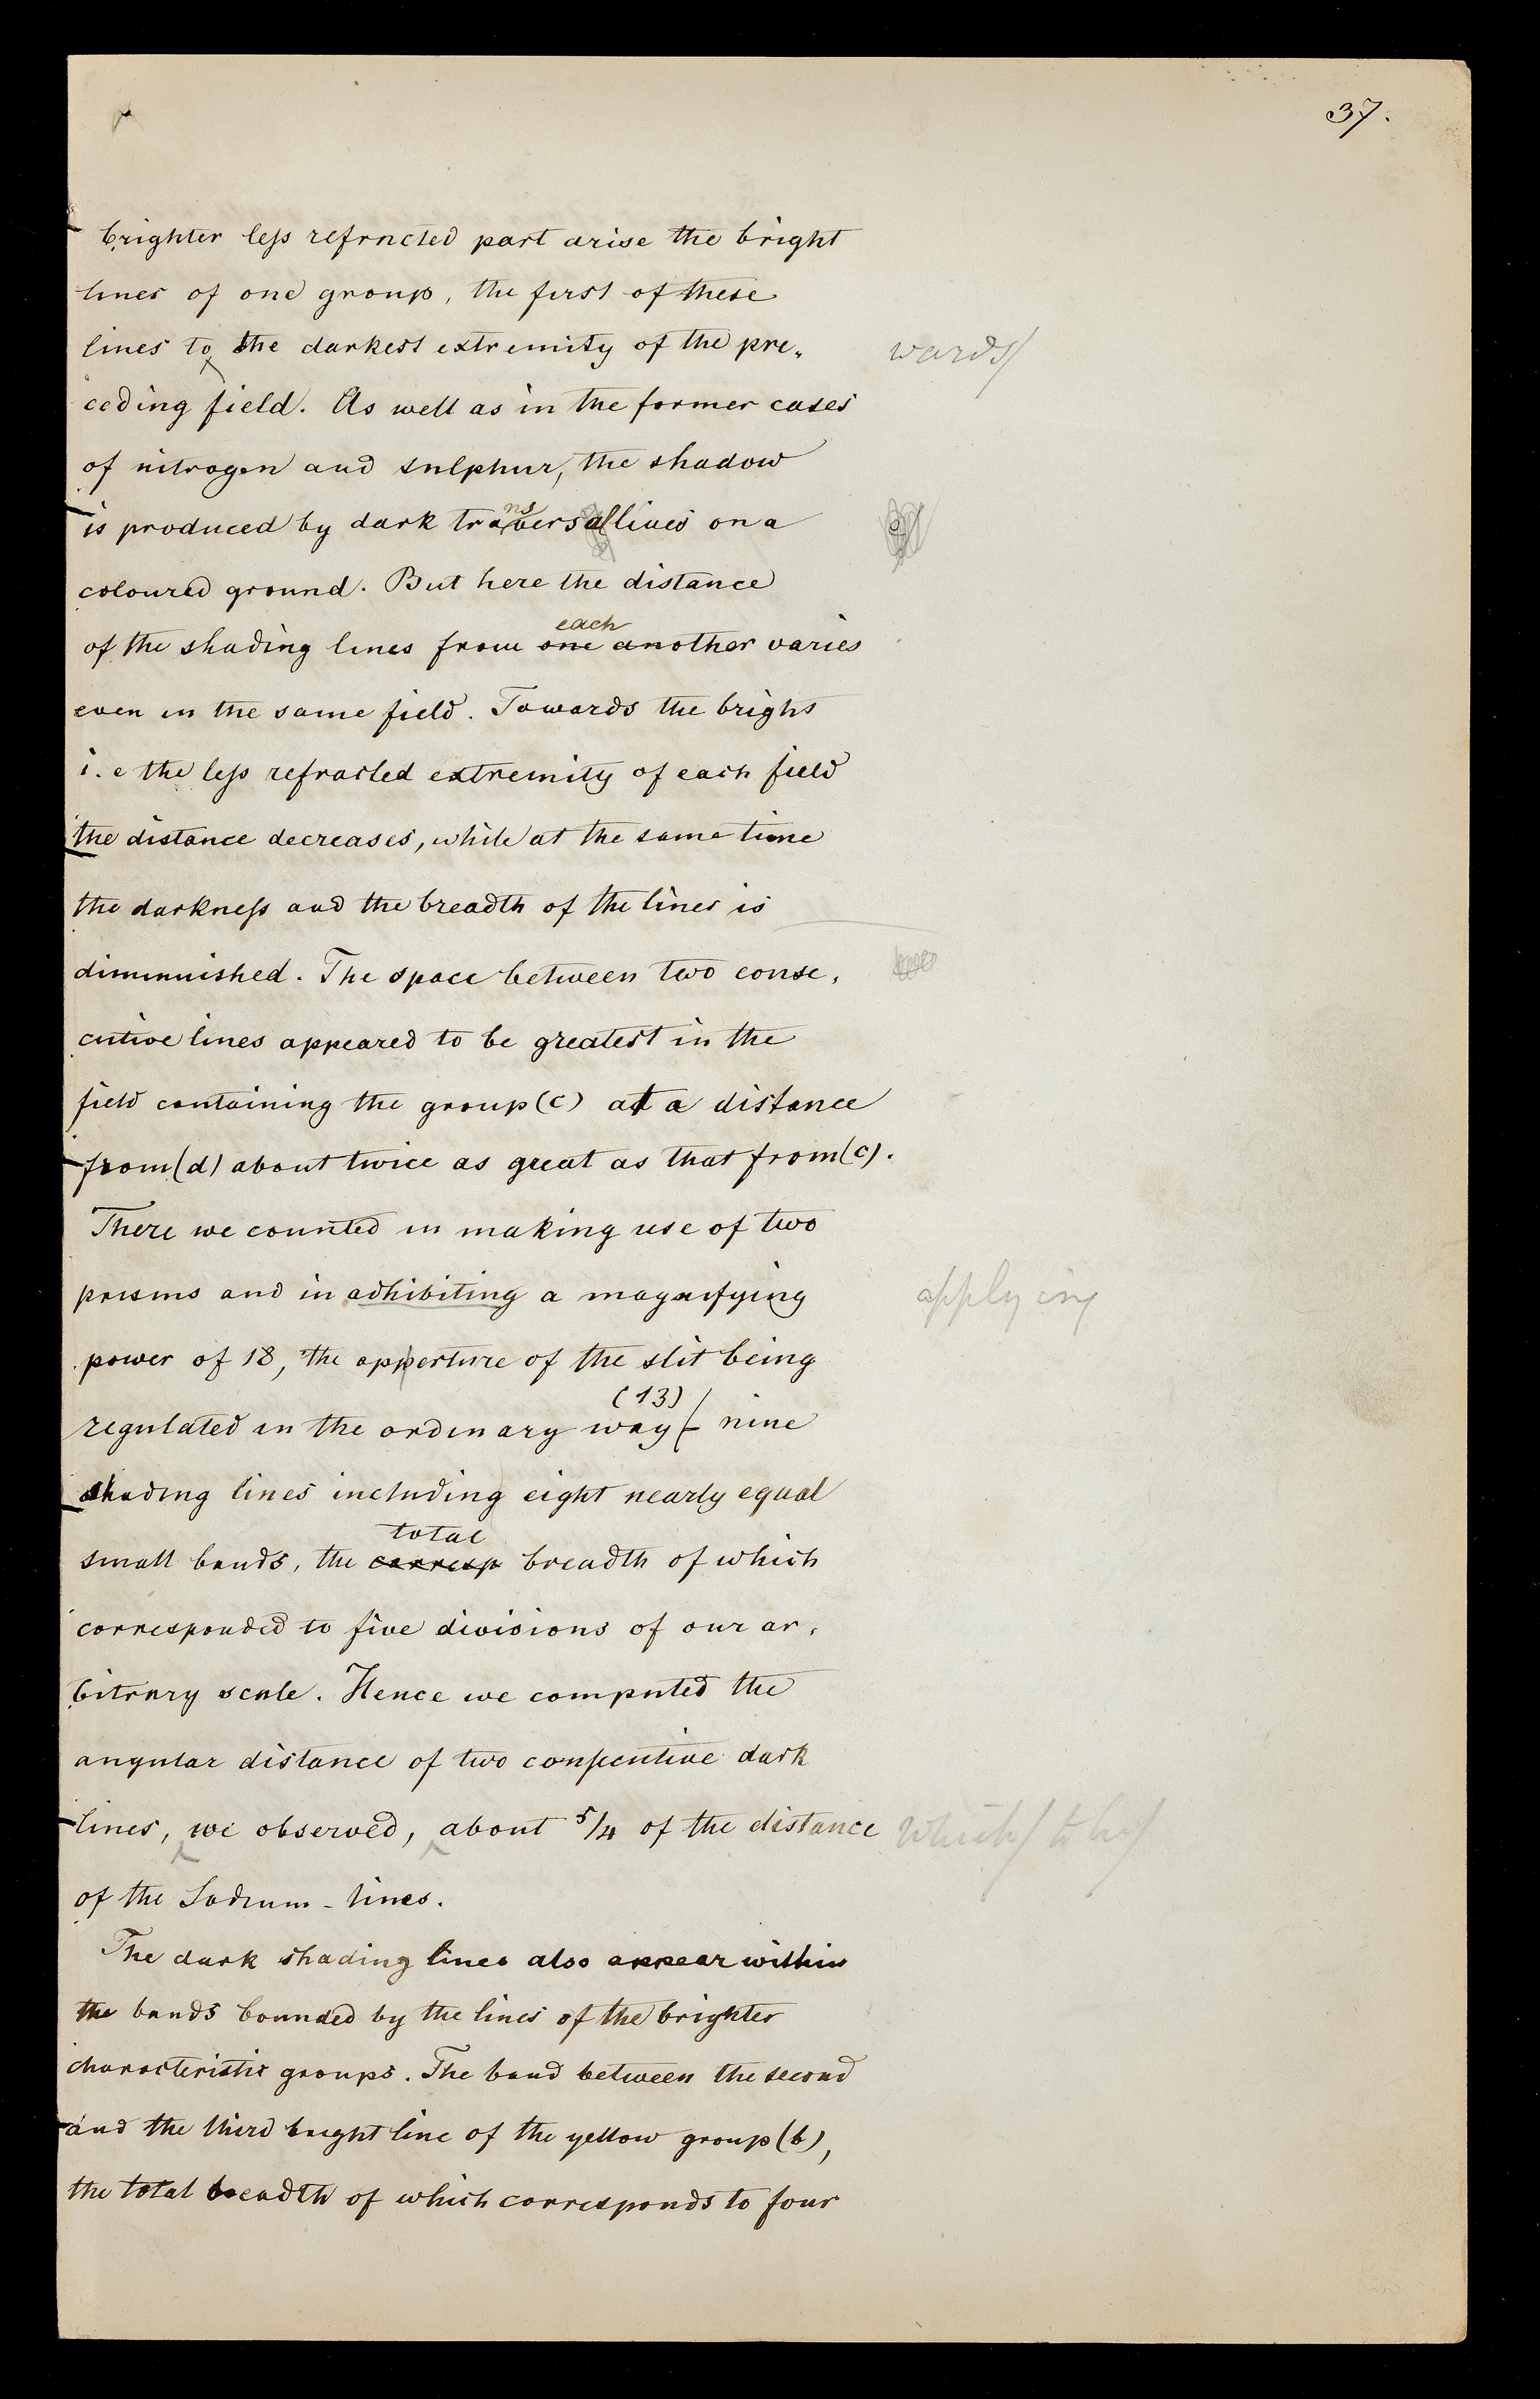 37.
brighter less refracted part arise the bright
lines of one group, the first of these
lines to the darkest extremity of the pre- wards/
ceding field. As well as in the former cases
of nitrogen and sulphur, the shadow
ns
is produced by dark traversal lines on a
coloured ground. But here the distance
each
of the shading lines from one another varies
even in the same field. Towards the bright
i.e the less refracted extremity of each field
the distance decreases, while at the same time
the darkness and the breadth of the lines is
dimmuished. The space between two conse-
cutive lines appeared to be greatest in the
field containing the group (c) at a distance
from (d) about twice as great as that from (c).
There we counted in making use of two
prisms and in adhibiting a magnifying applying
power of 18, the apperture of the slit being
(13)
regulated in the ordinary way nine
shading lines including eight nearly equal
total
small bands, the corresp breadth of which
corresponded to five divisions of our ar-
bitrary scale. Hence we computed the
angular distance of two consecutive dark
lines, we observed, about 5/4 of the distance which/ to be/
of the Sodium-lines.
The dark shading lines also appear within
the bands bounded by the lines of the brighter
characteristic groups. The band between the second
and the third bright line of the yellow group (b),
the total breadth of which corresponds to four